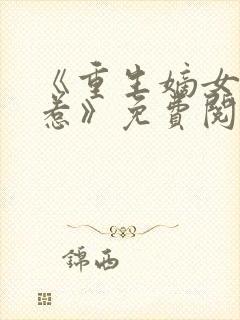 《重生嫡女
惹》免費閱
錦西